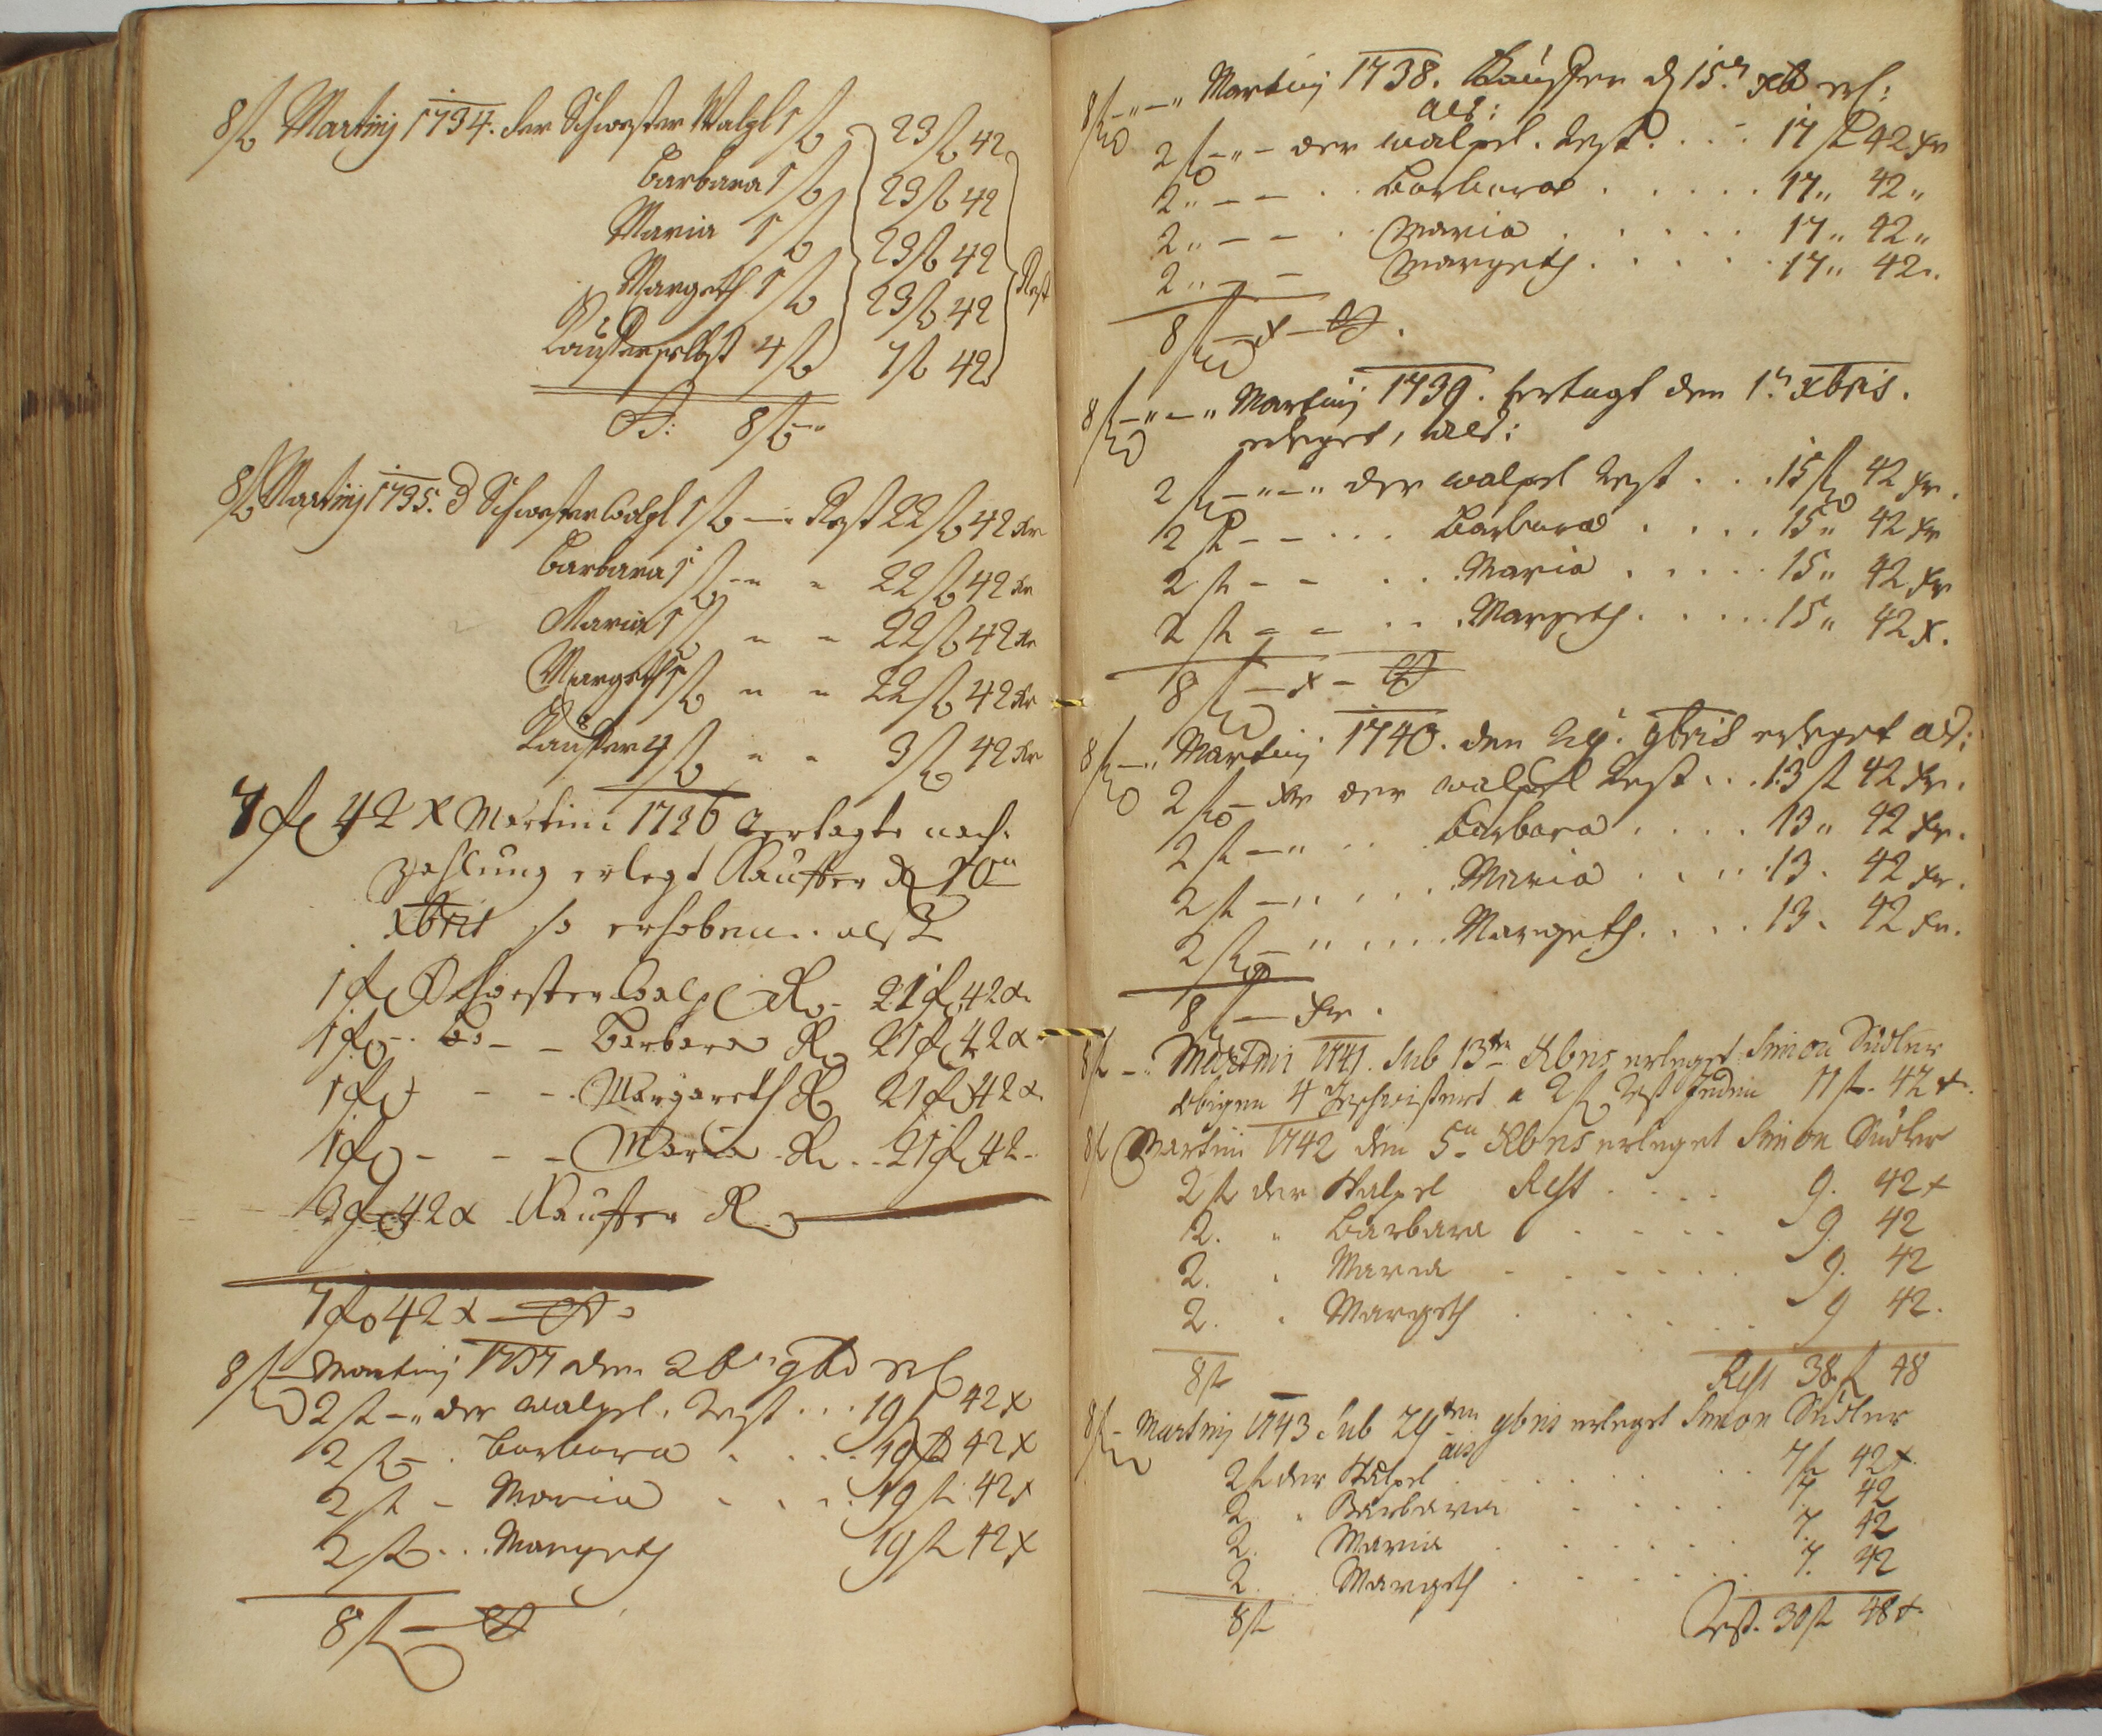 8 fl Martinj 1734. der Schwester Walpl 1 fl 23 fl 42
Barbara 1 fl 23 fl 42
Maria 1 fl 23 fl 42
Margeth 1 fl 23 fl 42 Rest
Kaüffer selbst 4 fl 7 fl 42
8 fl
8 fl Martinj 1735. d Schwester Walpl 1 fl — Rest 22 fl 42 kr
Barbara 1 fl - - 22 fl 42 kr
Maria 1 fl - - 22 fl 42 kr
Margeth 1 fl - - 22 fl 42 kr
Kaüffer 4 fl - - 3 fl 42 kr
7 fl 42 x Martini 1736 vertagte nach
zahlung erlegt Kauffer d 10n
xbris so erhoben. als
1 fl Schwester Walpl R. 21 fl 42 x
1 fl - do - - Barbara R 21 fl 42 x
1 fl - - - Margareth R 21 fl 42 x
1 fl - - - Maria R. 21 fl 42 -
3 fl 42 x Kauffer R
7 fl 42 x
8 fl — Martinj 1737 den 26n 9br erl
2 fl - der walpel. Rest . . . 19 f 42 x
2 fl - . Barbara . . . . 19 fl 42 x
2 fl - Maria . . . . 19 fl 42 x
2 fl . . . Margeth 19 fl 42 x
8 fl —
8 fl - " - " Martinj 1738. Kaüffer d 15n xb erl:
als:
2 fl - " - der walpel. Rest. . . . 17 fl 42 xr
2 " - - . Barbara . . . . . 17 " 42 "
2 " - - . Maria . . . . . 17 " 42 "
2 " - - Margeth . . . . . 17 " 42 "
8 fl — x —
8 fl - " - " Martinj 1739. vertagt den 1n xbris.
erleget, als:
2 fl - " - " der walpel Rest . . . 15 fl 42 xr.
2 fl - - . . . Barbara . . . . 15 " 42 xr
2 fl - - . . . Maria . . . . . 15 " 42 xr
2 fl - - . . . Margeth . . . . . 15 " 42 x.
8 fl — x —
8 fl - " Martinj 1740. den 29. 9bris erleget als:
2 fl - xr der walpel Rest . . . 13 fl 42 xr.
2 fl - " . . . Barbara . . . . 13 " 42 xr.
2 fl - " . . . Maria . . . . 13. 42 xr.
2 fl - " . . . . Margeth. . . . 13. 42 xr.
8 fl — xr.
8 fl - " Martini 1741. Sub 13ten Xbris erleget Simon Südler
obigen 4 Geschwistert a 2 fl Rest Jedem 11 fl. 42 x.
8 fl Martini 1742 den 5n Xbris erleget Simon Südler
2 fl der Walpel Rest . . . . 9. 42 x
2. " Barbara . . . . . 9. 42
2. " Maria . . . . . . 9. 42
2. " Margeth . . . . . 9 42.
8 fl Rest 38 fl 48
8 fl - Martinj 1743 Sub 29ten 9bris erleget Simon Südler
als
2 fl der Walpel . . . . . . . 7 fl 42 x.
2 " Barbara . . . . . 7. 42
2. Maria . . . . . . 7. 42
2. Margeth . . . . . . 7. 42
8 fl Rest. 30 fl 48 x.